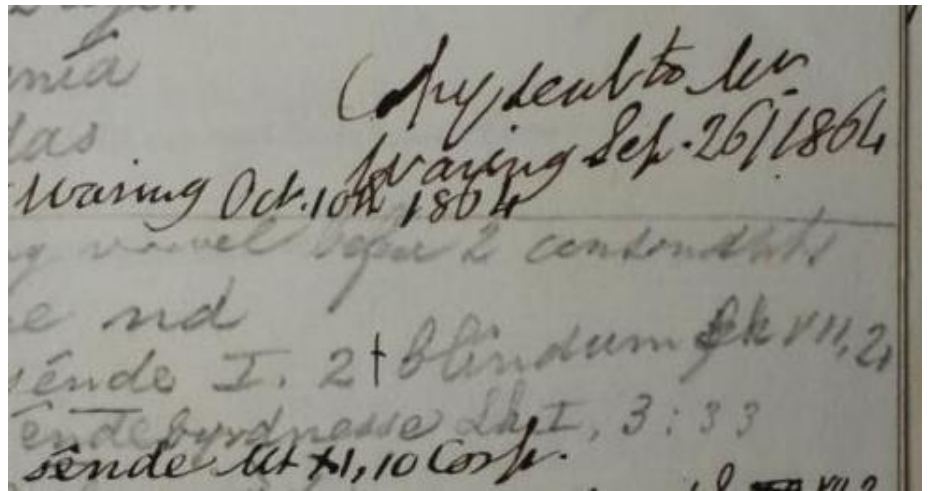 nia
das
Copy sent to Mr.
Waring Sep. 26/1864
Waring Oct. 10th 1864
vowel before 2 consonants
nd
sénde I. 2 † blindum Lk VII, 21
éndebyrdnesse Lk I, 3 : 33
sénde Mt XI, 10 Corp.